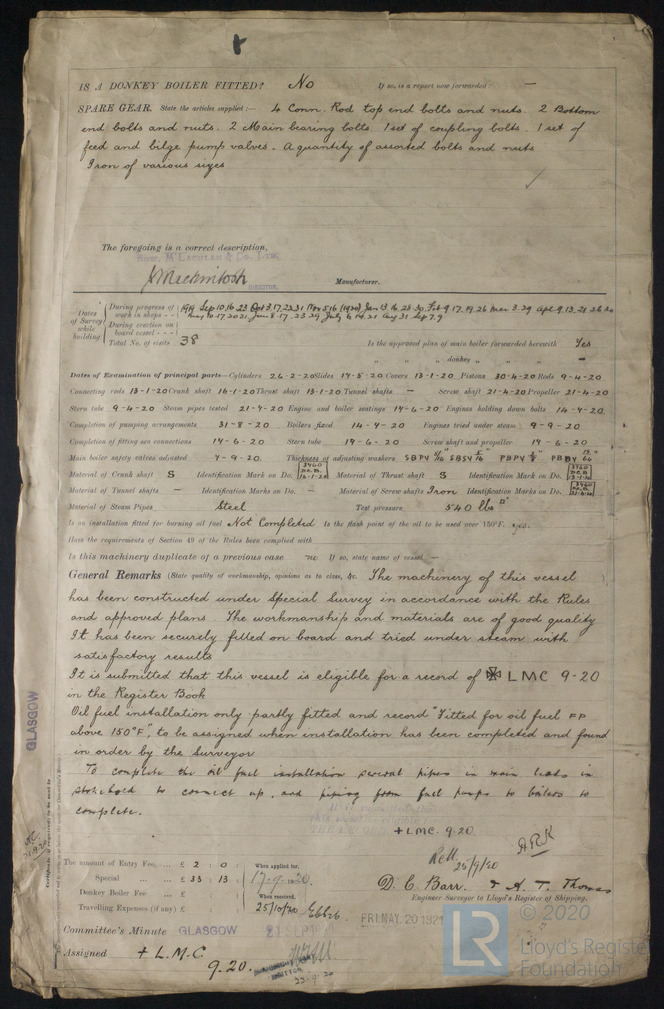 IS A DONKEY BOILER FITTED? No If so, is a report now forwarded? —
SPARE GEAR. State the articles supplied :— 4 Conn. Rod top end bolts and nuts. 2 Bottom
end bolts and nuts. 2 Main bearing bolts. 1 set of coupling bolts. 1 set of
feed and bilge pump valves. A quantity of assorted bolts and nuts
Iron of various sizes
The foregoing is a correct description,
McLachlan & Co. Ltd.
J Mackintosh DIRECTOR. Manufacturer.
Dates of Survey while building
During progress of work in shops - - 1919 Sep 10.16.23 Oct 3.17.22.31 Nov 5.16 (1920) Jan 13.16.28.30. Feb 9.17.19.26 Mar 3.29 Apl 9.13.21.26.30
During erection on board vessel - - - May 10.17.20.21. Jun 8.17.23.29. July 6.14.21 Aug 31 Sep 7.9
Total No. of visits 38 Is the approved plan of main boiler forwarded herewith Yes
" " " donkey " " " —
Dates of Examination of principal parts—Cylinders 26-2-20 Slides 17-5-20 Covers 13-1-20 Pistons 30-4-20 Rods 9-4-20
Connecting rods 13-1-20 Crank shaft 16-1-20 Thrust shaft 13-1-20 Tunnel shafts — Screw shaft 21-4-20 Propeller 21-4-20
Stern tube 9-4-20 Steam pipes tested 21-7-20 Engine and boiler seatings 14-6-20 Engines holding down bolts 14-7-20.
Completion of pumping arrangements 31-8-20 Boilers fixed 14-7-20 Engines tried under steam 9-9-20
Completion of fitting sea connections 14-6-20 Stern tube 14-6-20 Screw shaft and propeller 14-6-20
Main boiler safety valves adjusted 7-9-20. Thickness of adjusting washers
Material of Crank shaft S Identification Mark on Do. Material of Thrust shaft S Identification Mark on Do.
Material of Tunnel shafts — Identification Marks on Do. Material of Screw shafts Iron Identification Marks on Do.
Material of Steam Pipes Steel Test pressure 540 lbs □"
Is an installation fitted for burning oil fuel Not Completed Is the flash point of the oil to be used over 150°F. yes.
Have the requirements of Section 49 of the Rules been complied with
Is this machinery duplicate of a previous case no If so, state name of vessel —
General Remarks (State quality of workmanship, opinions as to class, &c. The machinery of this vessel
has been constructed under Special Survey in accordance with the Rules
and approved plans. The workmanship and materials are of good quality
It has been securely fitted on board and tried under steam with
satisfactory results
It is submitted that this vessel is eligible for a record of ✠ LMC 9-20
in the Register Book
Oil fuel installation only partly fitted and record "Fitted for oil fuel FP
above 150°F", to be assigned when installation has been completed and found
in order by the Surveyor
To complete the oil fuel installation several pipes in main leads in
stokehold to connect up, and piping from fuel pumps to boilers to
complete.
GLASGOW
+ LMC. 9.20
A.R.K
25/9/20
The amount of Entry Fee ... £ 2 : 0 : When applied for,
Special ... £ 33 : 13 : 17-9-1920.
Donkey Boiler Fee ... £ : : When received,
Travelling Expenses (if any) £ : : 25/10/20
D. C. Barr. & A. T. Thomas
Engineer Surveyor to Lloyd's Register of Shipping.
Committee's Minute GLASGOW 21 SEP 1920
FRI MAY. 20 1921
Assigned + L.M.C
9.20.
22-9-20
LR © 2020
Lloyd's Register
Foundation